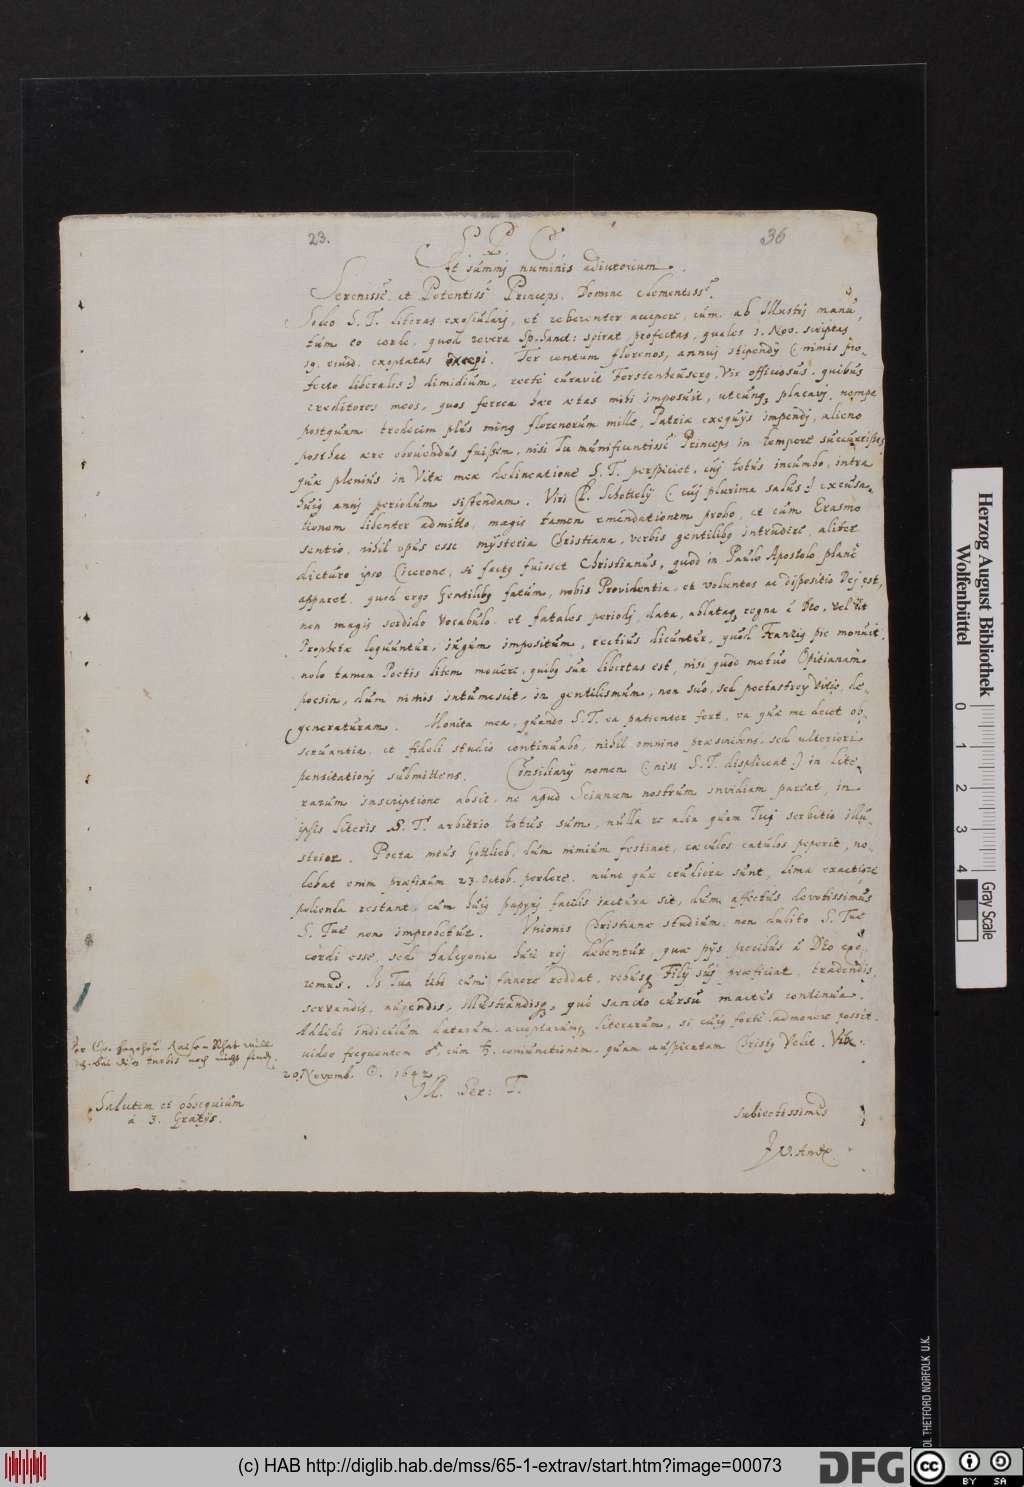 23.
36
S. P. C.
Et summi numinis adiutorium.
Sereniss.e et Potentiss.e Princeps, Domine Clementiss.e
Soleo S. T. literas exosculari, et reverenter accipere, cùm ab Illustri manu,
tum eo corde, quod revera Sp. Sanct: spirat, profectas, quales 1. Nov. scriptas
19. eiusd. exoptatas excepi. Ter centum florenos, annui stipendij (: nimis pro-
fecto liberalis:) dimidium, rectè curavit Forstenheuserg, Vir officiosus, quibus
creditores meos, quos ferrea haec aetas mihi imposuit, utcunq placavi, nempe
postquam tredecim plus minq florenorum mille, Patriae exequijs impendj, alieno
posthac aere obruendus fuissem, nisi Tu munificentisse Princeps in tempore succurrisses
quae plenius in Vitae meae delineatione S. T. perspiciet, cuj totus incumbo, intra
huiq annj periodum sistendam. Viri Cl. Schottelij (: cuj plurima salus:) excusa-
tionem libenter admitto, magis tamen emendationem probo, et cum Erasmo
sentio, nihil opus esse mysteria Christiana, verbis gentilibq intrudere, aliter
dicturo ipso Cicerone, si factq fuisset Christianus, quod in Paulo Apostolo planè
apparet. quod ergo Gentilibq fatum, nobis Providentia, et voluntas ac dispositio Dej est,
non magis sordido vocabulo, et fatales periodj, data, ablataq regna à Deo, vel ut
Prophetae loquuntur, iugum impositum, rectius dicuntur, quod Franziq piè monuit.
nolo tamen Poetis litem movere, quibq sua libertas est, nisi quod metuo Opitianam
poesin, dum nimis intumescit, in gentilismum, non suo, sed poetastrorum vitio, de-
generaturam. Monita mea, quando S. T. ea patienter fert, ea quae me decet ob-
servantia, et fideli studio continuabo, nihil omnino praescribens, sed ulteriori
pensitationj submittens. Consiliarij nomen (: nisi S. T. displiceat:) in lite-
rarum inscriptione absit, ne apud Scianum nostrum invidiam pariat, in
ipsis literis S. T. arbitrio totus sum, nulla re alia quam Tuj servitio illu-
strior. Poeta meus Gottlieb, dum nimium festinat, caeculos catulos peperit, no-
lebat enim praefixum 23. Octob. perdere. nunc quae crudiora sunt, lima exactiore
polienda restant, cum huiq papyrj facilis iactura sit, dum affectus devotissimus
S. Tuae non improbetur. Unionis Christianae studium, non dubito S. Tuae
cordi esse, sed halcyonia huic rej debentur, quae pijs precibus à Deo spe-
remus. Is Tua tibi cum faenore reddat, rebusq Filij suj praeficiat, tradendis,
servandis, augendis, illustrandisq, quò sancto cursu mactus continua.
Addidi indiculum datarum, acceptarumq literarum, si cuiq fortè admonere possit.
video frequentem ♂, cum ♄. coniunctionem, quam auspicatam Christq velit. Vale.
20. Novemb. ☉. 1642.
Ill. Ser: T.
subiectissimus
J V. Andr.
Salutem et obsequium
à 3. Gratijs.
Herzog August Bibliothek
Wolfenbüttel
0 1 2 3 4
Gray Scale
OL THETFORD NORFOLK U.K.
(c) HAB http://diglib.hab.de/mss/65-1-extrav/start.htm?image=00073
DFG
cc BY SA